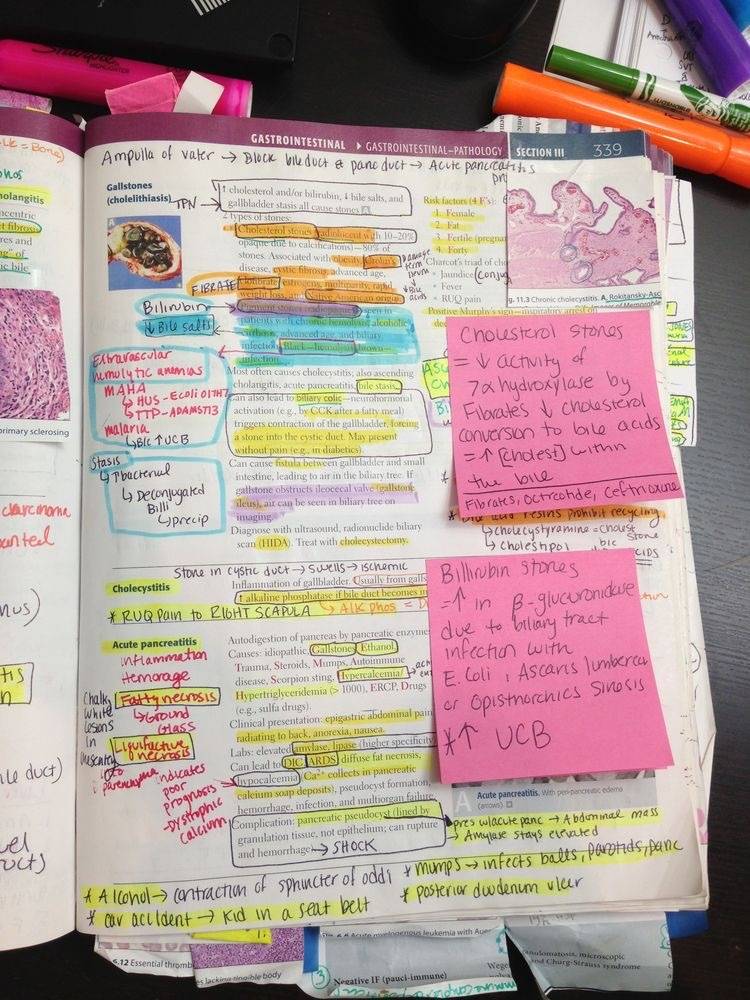 Sharpie
HIGHLIGHTER
GASTROINTESTINAL ▶ GASTROINTESTINAL–PATHOLOGY
SECTION III 339
Ampulla of vater → Block bile duct & panc duct → Acute pancreatitis
Gallstones
(cholelithiasis)
TPN
↑ cholesterol and/or bilirubin, ↓ bile salts, and
gallbladder stasis all cause stones
2 types of stones:
Cholesterol stones (radiolucent with 10–20%
opaque due to calcifications)—80% of
stones. Associated with obesity, Crohn's
disease, cystic fibrosis, advanced age,
FIBRATE
clofibrate, estrogens, multiparity, rapid
weight loss, Native American origin
Bilirubin
↓ Bile salts
patients with chronic hemolysis, alcoholic
cirrhosis, advanced age, and biliary
infection. Black—hemolysis, brown—
infection.
Most often causes cholecystitis; also ascending
cholangitis, acute pancreatitis, bile stasis.
can also lead to biliary colic—neurohormonal
activation (e.g., by CCK after a fatty meal)
triggers contraction of the gallbladder, forcing
a stone into the cystic duct. May present
without pain (e.g., in diabetics).
Can cause fistula between gallbladder and small
intestine, leading to air in the biliary tree. If
gallstone obstructs ileocecal valve (gallstone
ileus), air can be seen in biliary tree on
imaging.
Diagnose with ultrasound, radionuclide biliary
scan (HIDA). Treat with cholecystectomy.
Extravascular
hemolytic anemias
MAHA
↳ HUS - Ecoli O157H7
↳ TTP - ADAMST13
malaria
↳ B/c ↑ UCB
Stasis
↳ ↑ bacterial
↳ Deconjugated
Billi
↳ Precip
Risk factors (4 F's):
1. Female
2. Fat
3. Fertile (pregnant)
4. Forty
Charcot's triad of
Jaundice
Fever
RUQ pain
Positive Murphy's sign—inspiratory
Damage
term
ileum
↓ Bile
acids
g. 11.3 Chronic cholecystitis. A, Rokitansky-Asc
Cholesterol stones
= ↓ activity of
7α hydroxylase by
Fibrates ↓ cholesterol
conversion to bile acids
= ↑ [cholest] within
the bile
Fibrates, octreotide, ceftriaxone
* Bile acid resins prohibit recycling
↳ cholecystyramine = cholest
stone
↳ cholestipol
Stone in cystic duct → swells → ischemic
Cholecystitis
Inflammation of gallbladder. Usually from
↑ alkaline phosphatase if bile duct becomes
* RUQ Pain to RIGHT SCAPULA
↳ Alk phos =
Billirubin stones
= ↑ in β-glucuronidase
due to biliary tract
infection with
E. Coli, Ascaris lumbercoi
or Opisthorchis Sinosis
* ↑ UCB
Acute pancreatitis
inflammation
Hemorage
Fatty necrosis
↳ Ground
Glass
Liquifactive
necrosis
Chalky
white
lesions
in
indicates
poor
prognosis
-Dystrophic
calcium
Autodigestion of pancreas by pancreatic enzymes
Causes: idiopathic, Gallstones, Ethanol,
Trauma, Steroids, Mumps, Autoimmune
disease, Scorpion sting, Hypercalcemia/
Hypertriglyceridemia (> 1000), ERCP, Drugs
(e.g., sulfa drugs).
Clinical presentation: epigastric abdominal pain
radiating to back, anorexia, nausea.
Labs: elevated amylase, lipase (higher specificity)
Can lead to DIC, ARDS, diffuse fat necrosis,
hypocalcemia (Ca²⁺ collects in pancreatic
calcium soap deposits), pseudocyst formation,
hemorrhage, infection, and multiorgan failure.
Complication: pancreatic pseudocyst (lined by
granulation tissue, not epithelium; can rupture
and hemorrhage) → SHOCK
A
Acute pancreatitis. With peri-pancreatic edema
(arrows).
pres w/acute panc → Abdominal mass
→ Amylase stays elevated
* Alcohol → contraction of sphincter of oddi
* mumps → infects balls, parotids, panc
* car accident → Kid in a seat belt
* posterior duodenum ulcer
primary sclerosing
6-12 Essential thromb
es lacking tingible body
Acute myelogenous leukemia with Auer
③
Negative IF (pauci-immune)
Wege
anulomatosis, microscopic
and Churg-Strauss syndrome